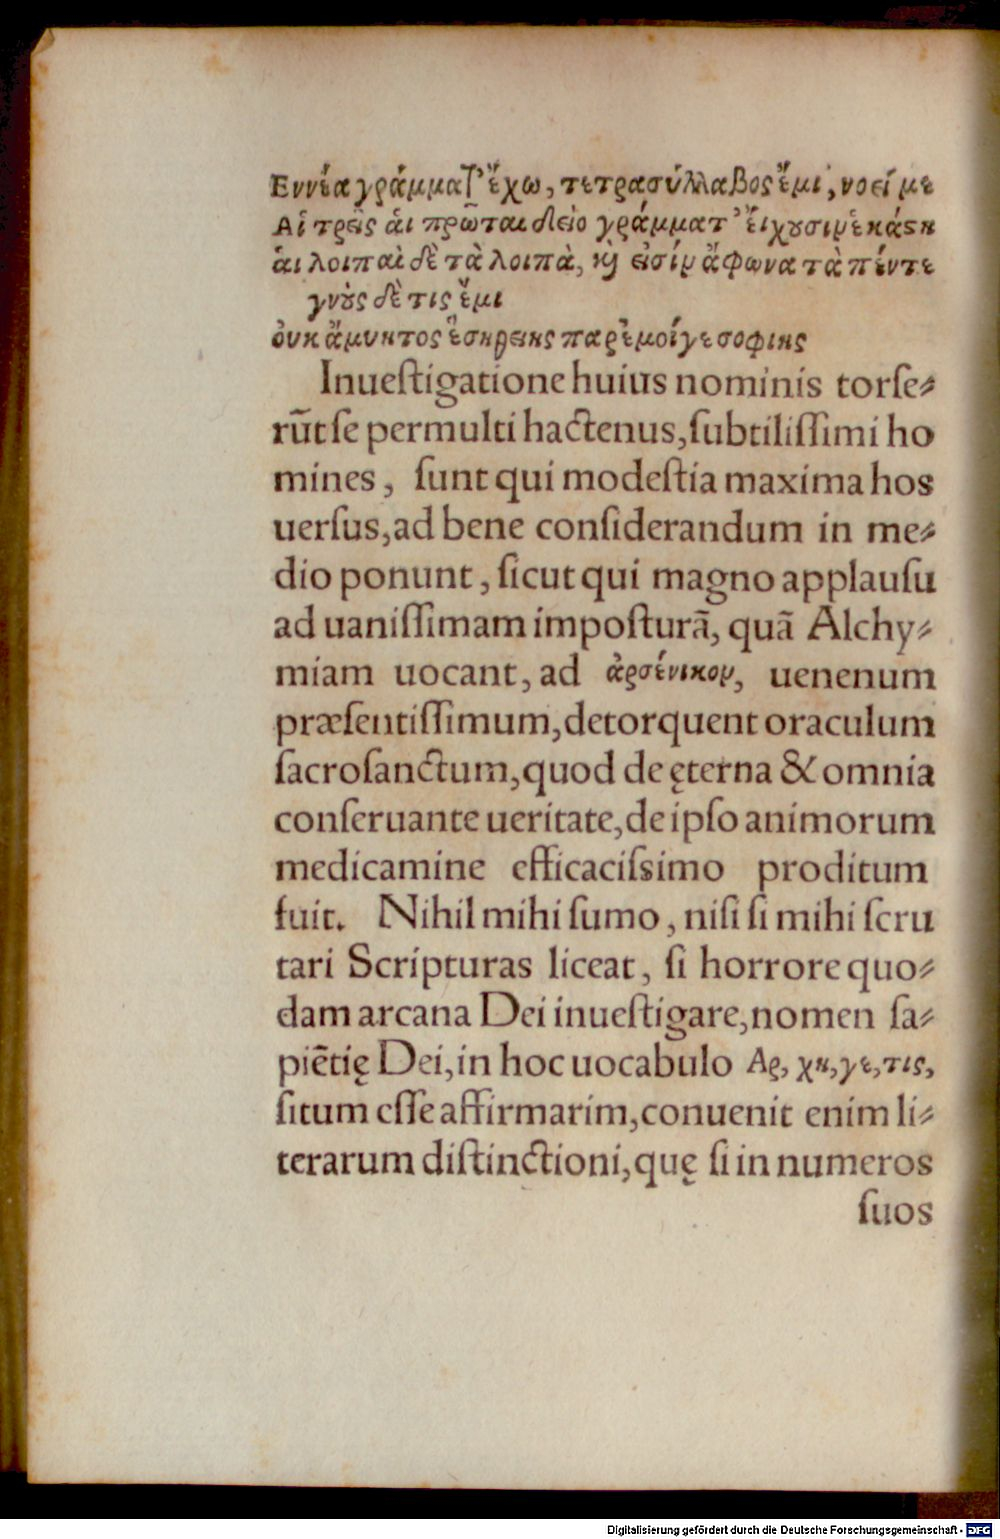 Εννέα γράμματ' ἔχω, τετρασύλλαβος ἔμι, νοεί με
Αἱ τρεῖς ἁι πρῶται δύο γράμματ' ἔιχουσιν ἑκάστη
ἁι λοιπαὶ δὲ τὰ λοιπὰ, καὶ εἰσίν ἄφωνα τὰ πέντε
γνοὺς δὲ τις ἔμι
ὀυκ ἄμυητος ἔση θείης παρ' ἐμοί γε σοφιης
Inueſtigatione huius nominis torſe⸗
rũt ſe permulti hactenus, ſubtiliſſimi ho
mines, ſunt qui modeſtia maxima hos
uerſus, ad bene conſiderandum in me⸗
dio ponunt, ſicut qui magno applauſu
ad uaniſſimam impoſturã, quã Alchy⸗
miam uocant, ad ἀρσένικον, uenenum
præſentiſſimum, detorquent oraculum
ſacroſanctum, quod de ęterna & omnia
conſeruante ueritate, de ipſo animorum
medicamine efficaciſsimo proditum
fuit. Nihil mihi ſumo, niſi ſi mihi ſcru
tari Scripturas liceat, ſi horrore quo⸗
dam arcana Dei inueſtigare, nomen ſa⸗
piẽtię Dei, in hoc uocabulo Αρ, χη, γε, τις,
ſitum eſſe affirmarim, conuenit enim li⸗
terarum diſtinctioni, quę ſi in numeros
ſuos
Digitalisierung gefördert durch die Deutsche Forschungsgemeinschaft - DFG